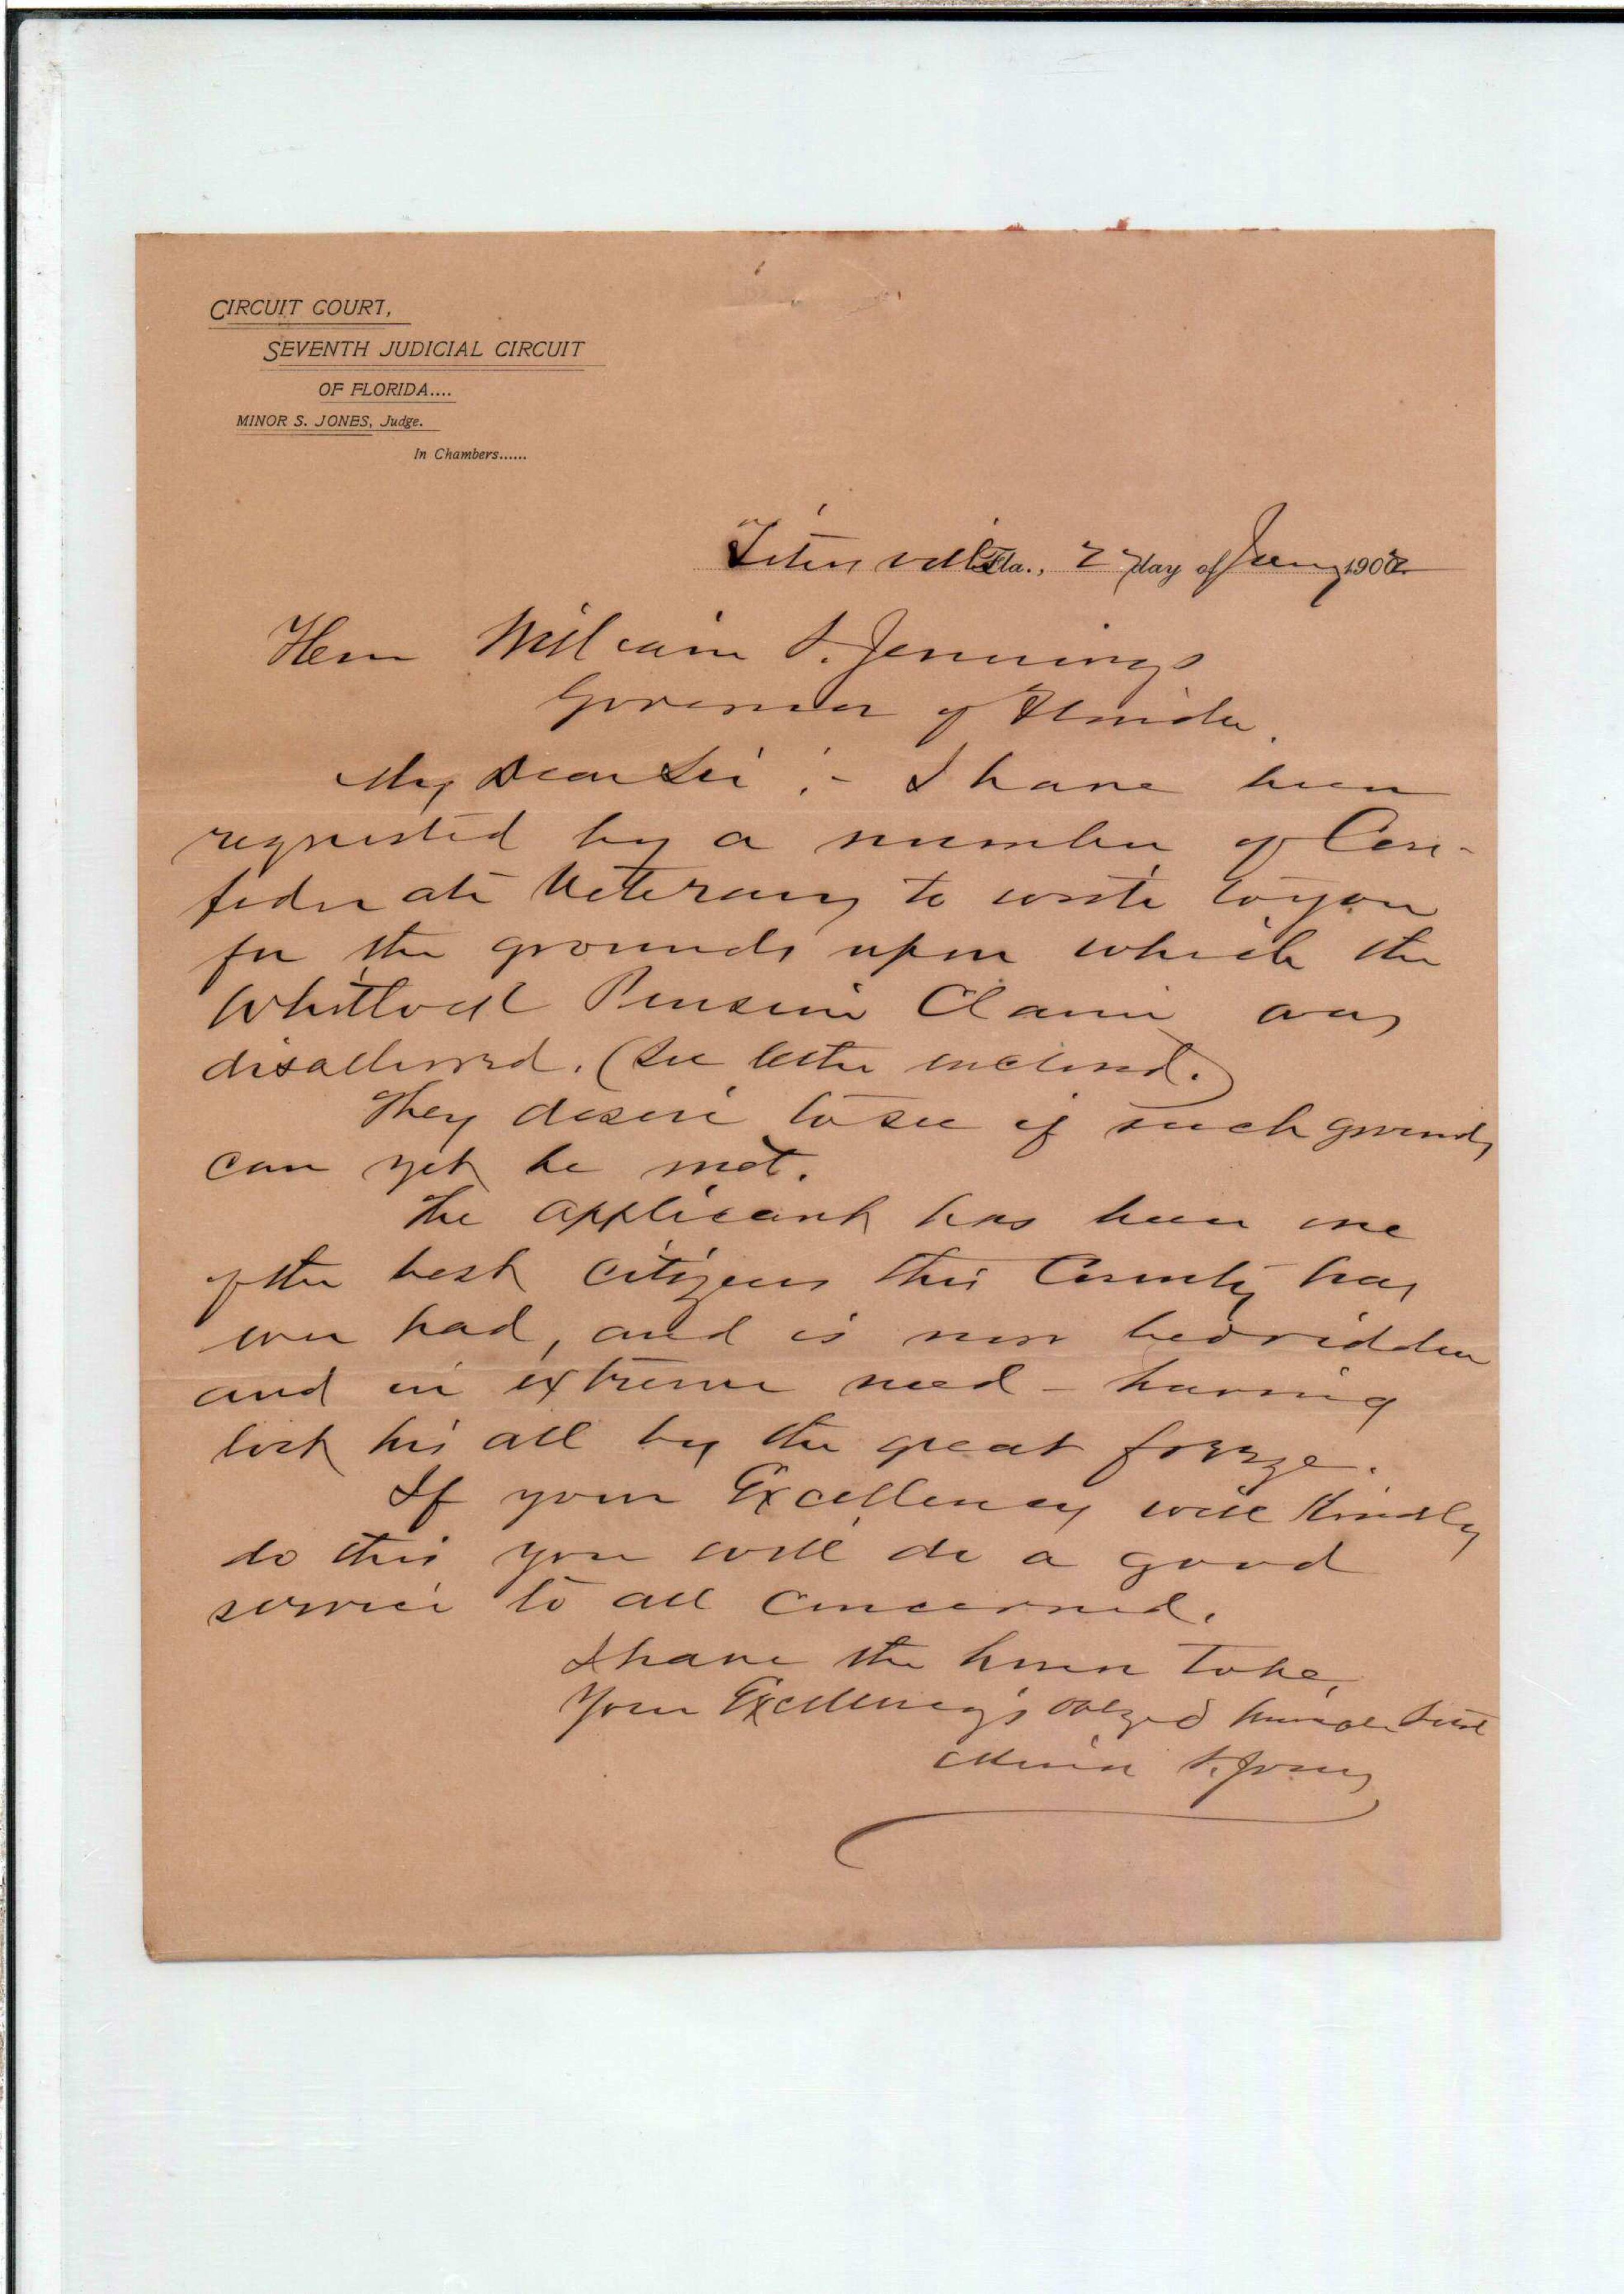 CIRCUIT COURT,
SEVENTH JUDICIAL CIRCUIT
OF FLORIDA....
MINOR S. JONES, Judge.
In Chambers......
Titusville Fla., 2 day of Jany 1902
Hon William S. Jennings
Governor of Florida.
My Dear Sir :- I have been
requested by a number of Con-
federate Veterans to write to you
for the grounds upon which the
Whitlock Pension Claim was
disallowed. (See letter enclosed.)
They desire to see if such grounds
can yet be met.
The applicant has been one
of the best citizens this County has
ever had, and is now bedridden
and in extreme need - having
lost his all by the great freeze.
If your Excellency will kindly
do this you will do a good
service to all concerned.
I have the honor to be,
Your Excellency's obliged humble Servt
Minor S. Jones